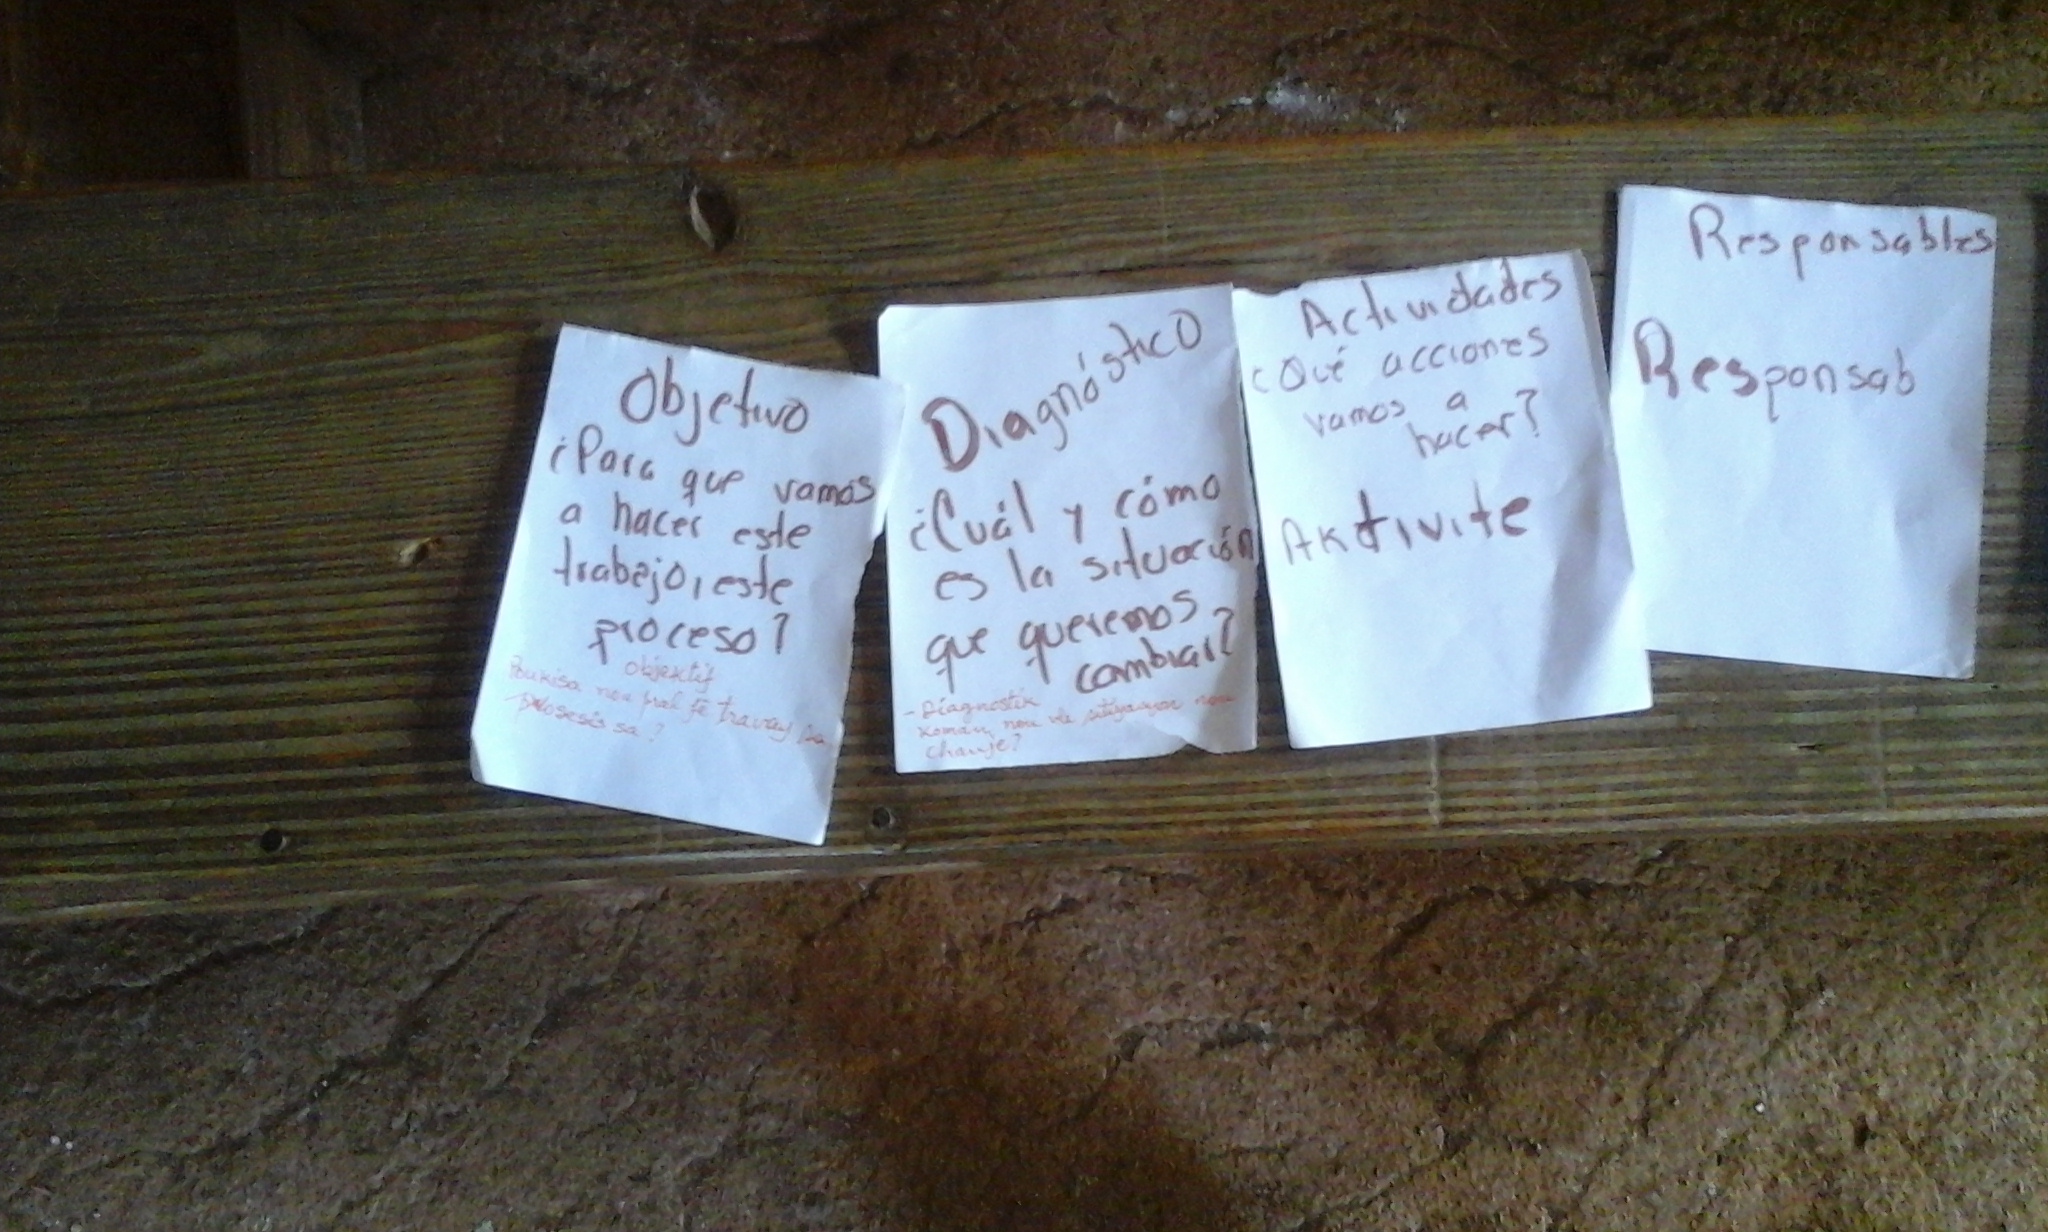 Objetivo
¿Para que vamos
a hacer este
trabajo, este
proceso?
Objektif
Poukisa nou pral fè travay sa
prosesis sa?
Diagnóstico
¿Cuál y cómo
es la situación
que queremos
cambiar?
- Diagnostik
Koman nou vle sitiyasyon nou
chanje?
Actividades
¿Qué acciones
vamos a
hacer?
Aktivite
Responsables
Responsab